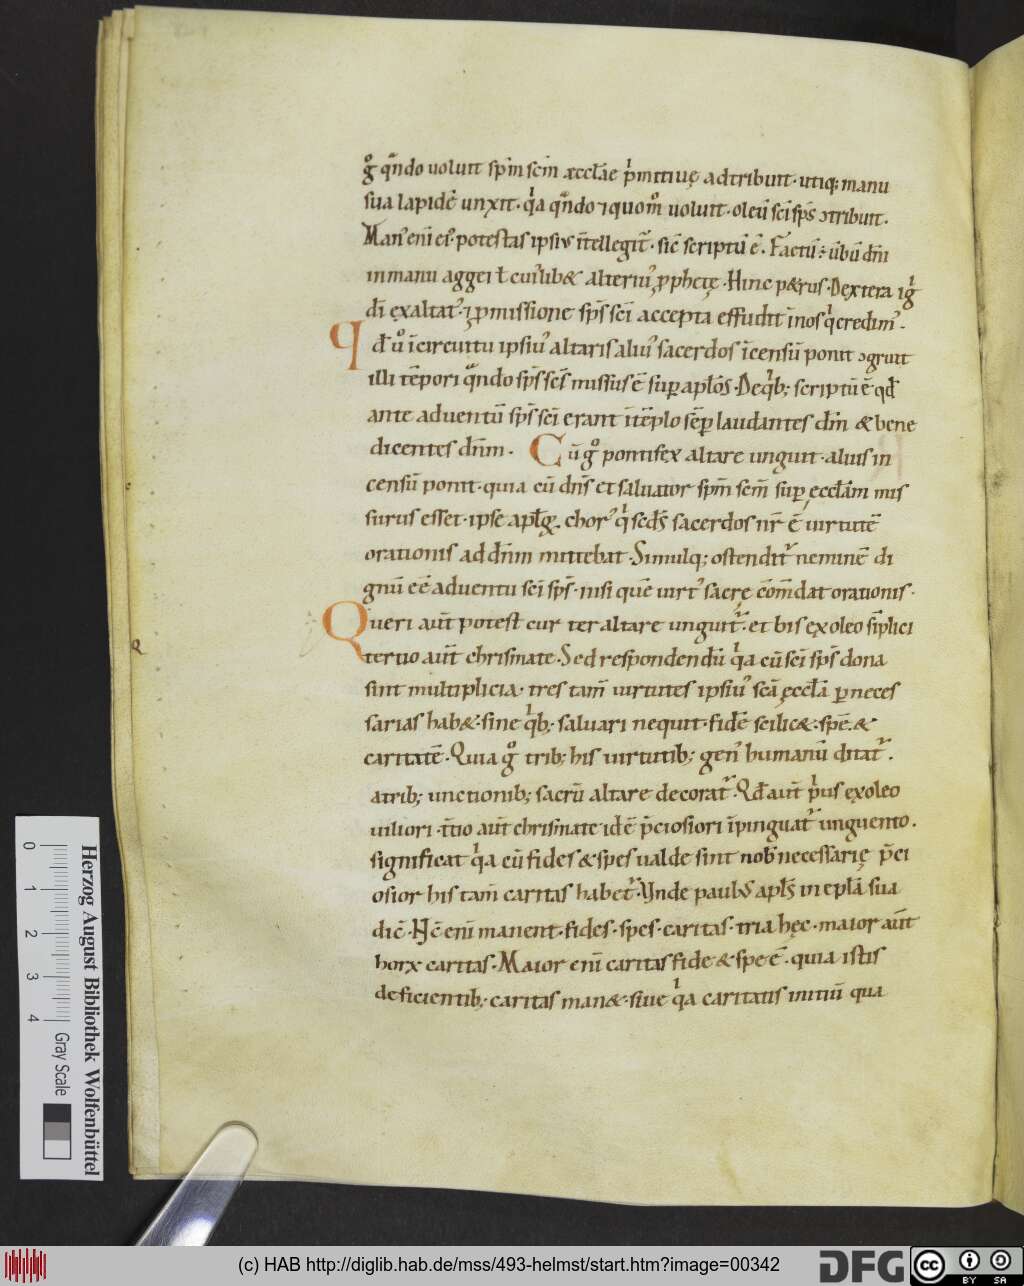 g̊ qͣndo uoluit sp̄m sc̄m æccl̄ae pͥmitiuę adtribuit · utiq; manu
sua lapidē unxit · qͥa qͣndo ⁊ quom̊ uoluit · oleū sc̄i sp̄s ɔtribuit ·
Man᾿ eni᷎ ei᾿ · potestas ipsius īntellegit᷑ · sic̄ scriptū ē · Factū ÷ uƀū dn̄i
in manu aggei ł cui᾿lib& alteri᾿ ꝓphetię · Hinc p&rus · Dextera igͥ
di᷎ exaltat᾿ · ⁊ ꝓmissione sp̄s sc̄i accepta effudit īnos qͥ credim᾿ ·
qđ uͦ īcircuitu ipsi᾿ altaris aliu᾿ sacerdos īcensū ponit ɔgruit
illi tēpori qͣndo sp̄s sc̄s missus ē sup apl̄os · De qͥb; scriptū ē qđ
ante aduentū sp̄s sc̄i erant īn tēplo sēp laudantes dm̄ & bene
dicentes dn̄m · Cū g̊ pontifex altare unguit · alius in
censū ponit · quia cū dn̄s et saluator sp̄m sc̄m sup ęccl̄am mis
surus esset · ipse apl̄ꝗ chor᾿ qͥ sc̄ds sacerdos nr̄ ē uirtutē
orationis ad dn̄m mittebat · Simulq; ostendit᷑ neminē di
gnū eē aduentu sc̄i sp̄s · nisi quē uirt᾿ sacrę cōm̄dat orationis ·
Queri aut̄ potest cur ter altare unguit᷑ · et bis ex oleo sīplici
tertio aut̄ chrismate · Sed respondendū qͥa cū sc̄i sp̄s dona
sint multiplicia · tres tam̄ uirtutes ipsi᾿ sc̄a ęccl̄a ꝑ neces
sarias hab& · sine qͥb; saluari nequit · fidē scilic& · spē · &
caritatē · Quia g̊ trib; his uirtutib; gen᾿ humanū ditat᷑ ·
a trib; unctionib; sacrū altare decorat᷑ · Qđ aut̄ pͥus ex oleo
uiliori · t̄tio aut̄ chrismate id ē p̄ciosiori īpinguat᷑ unguento ·
significat qͥa cū fides & spes ualde sint nob᾿ necessarię p̄ci
osior his tam̄ caritas habet᷑ · Vnde paulus apl̄s in epl̄a sua
dic̄ · Nc̄ eni᷎ manent · fides · spes · caritas · tria hęc · maior aut̄
horx caritas · Maior eni᷎ caritas fide & spe ē · quia istis
deficientib; caritas man& · siue qͥa caritatis initiū qua
Herzog August Bibliothek Wolfenbüttel
0 1 2 3 4
Gray Scale
(c) HAB http://diglib.hab.de/mss/493-helmst/start.htm?image=00342
DFG
cc BY SA